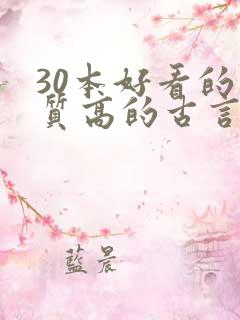 30本好看的
質高的古言
藍晨